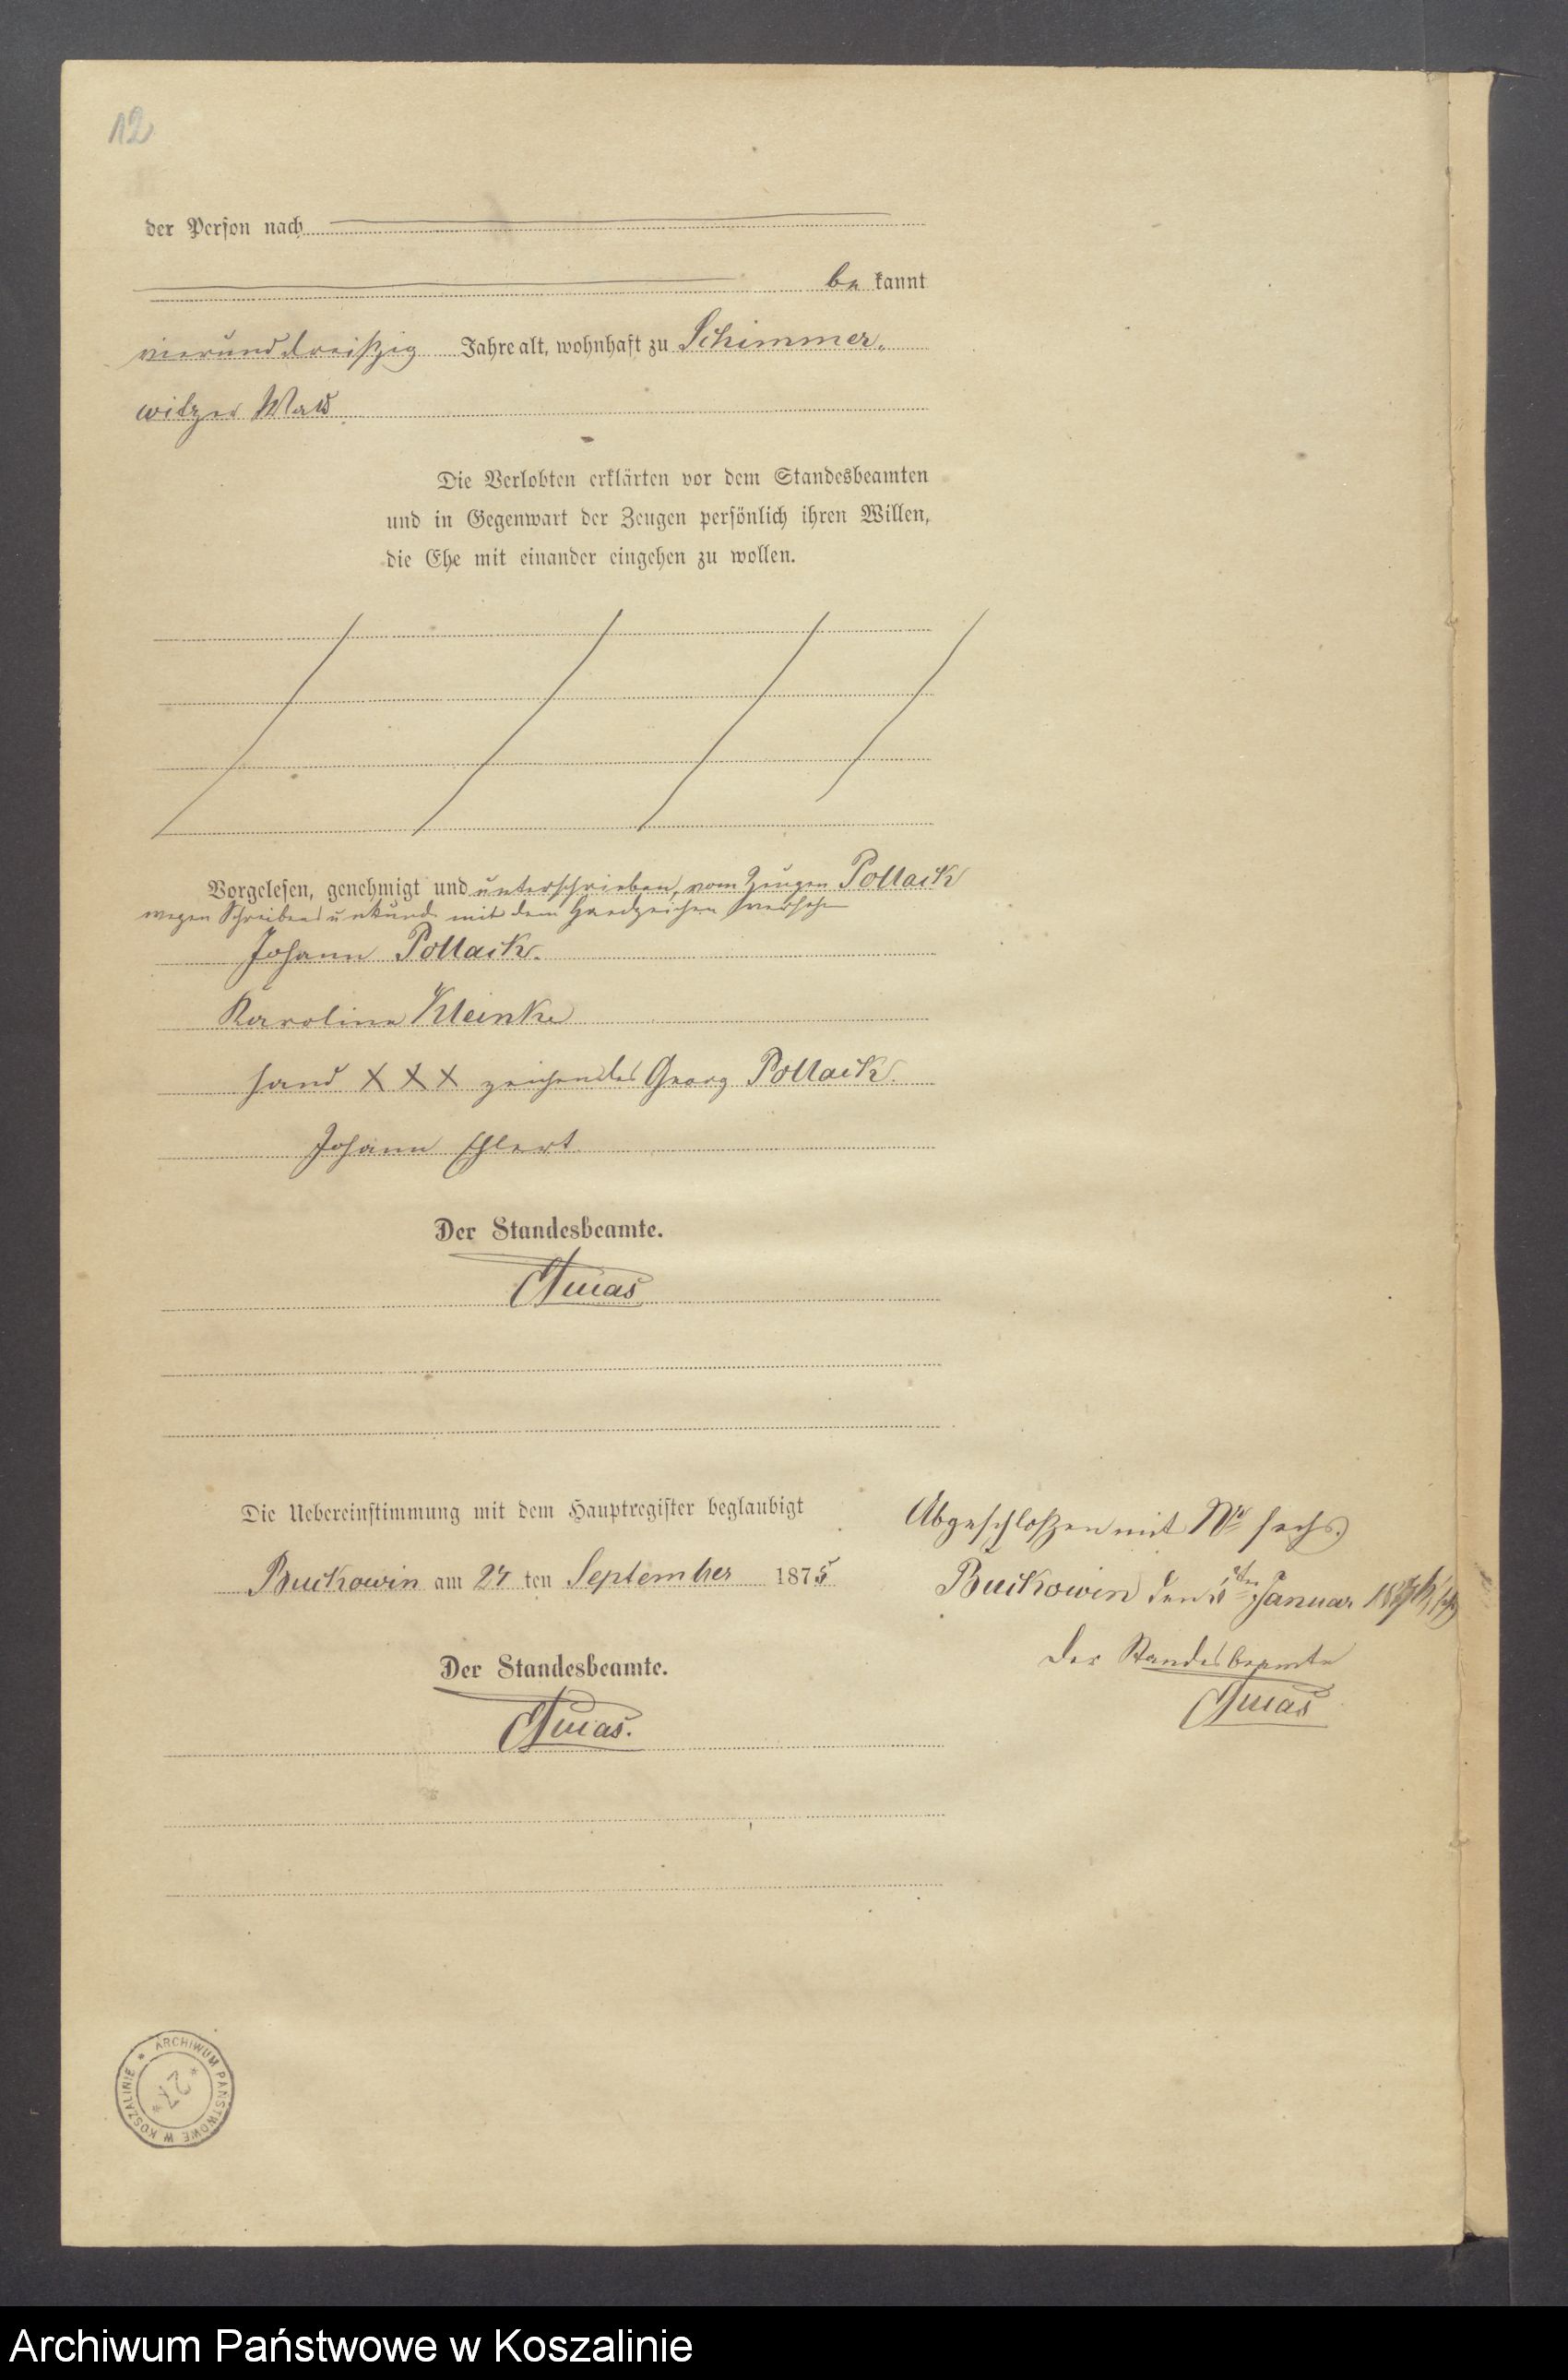 12
der Person nach
be kannt
vierunddreißig Jahre alt, wohnhaft zu Schimmer-
witzer Wald
Die Verlobten erklärten vor dem Standesbeamten
und in Gegenwart der Zeugen persönlich ihren Willen,
die Ehe mit einander eingehen zu wollen.
Vorgelesen, genehmigt und unterschrieben, vom Zeugen Pollack
wegen Schreibensunkunde mit dem Handzeichen versehen
Johann Pollack.
Karoline Kleinke
Hand X X X zeichen des Georg Pollack.
Johann Ehlert
Der Standesbeamte.
Die Uebereinstimmung mit dem Hauptregister beglaubigt
Buckowin am 24 ten September 1875
Der Standesbeamte.
Abgeschloßen mit No sechs.
Buckowin den Januar
Der Standesbeamte
ARCHIWUM PAŃSTWOWE W KOSZALINIE
Archiwum Państwowe w Koszalinie